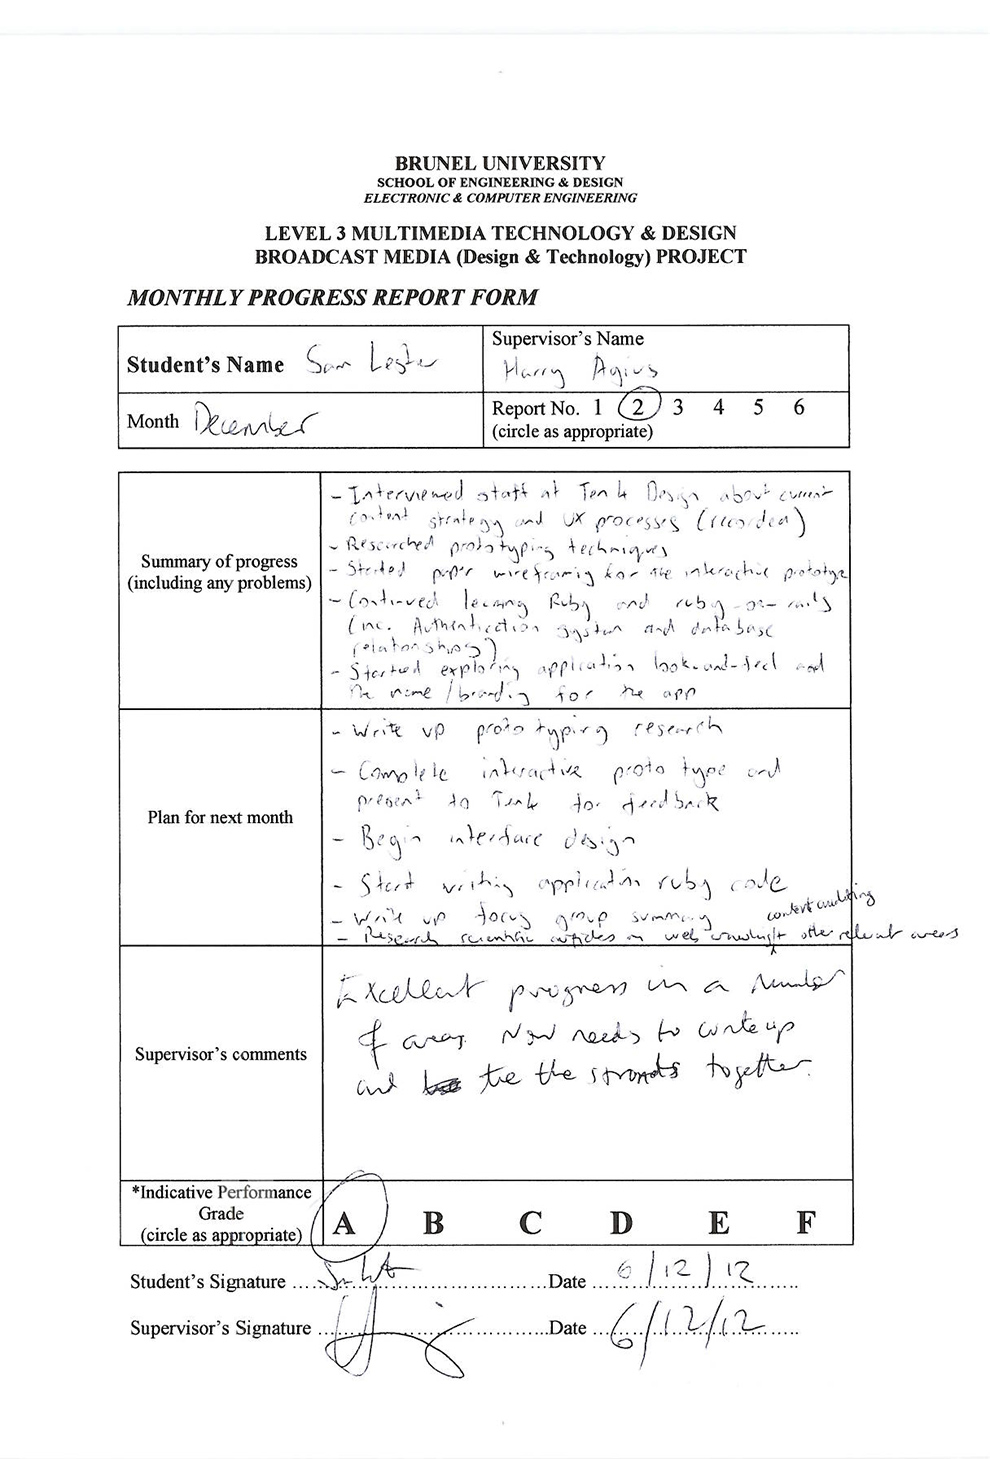 BRUNEL UNIVERSITY
SCHOOL OF ENGINEERING & DESIGN
ELECTRONIC & COMPUTER ENGINEERING
LEVEL 3 MULTIMEDIA TECHNOLOGY & DESIGN
BROADCAST MEDIA (Design & Technology) PROJECT
MONTHLY PROGRESS REPORT FORM
Student's Name Sam Lester
Supervisor's Name
Harry Agius
Month December
Report No. 1 2 3 4 5 6
(circle as appropriate)
Summary of progress
(including any problems)
- Interviewed staff at Ten4 Design about current
content strategy and UX processes (recorded)
- Researched prototyping techniques
- Started paper wireframing for the interactive prototype
- Continued learning Ruby and ruby-on-rails
(inc. Authentication system and database
relationships)
- Started exploring application look-and-feel and
the name/branding for the app
Plan for next month
- Write up prototyping research
- Complete interactive prototype and
present to Ten4 for feedback
- Begin interface design
- Start writing application ruby code
- Write up focus group summary
content auditing
- Research scientific articles on web crawling + other relevant areas
Supervisor's comments
Excellent progress in a number
of areas. Now needs to write up
and tie the strands together.
*Indicative Performance
Grade
(circle as appropriate)
A B C D E F
Student's Signature ........ Date 6/12/12
Supervisor's Signature ........ Date 6/12/12